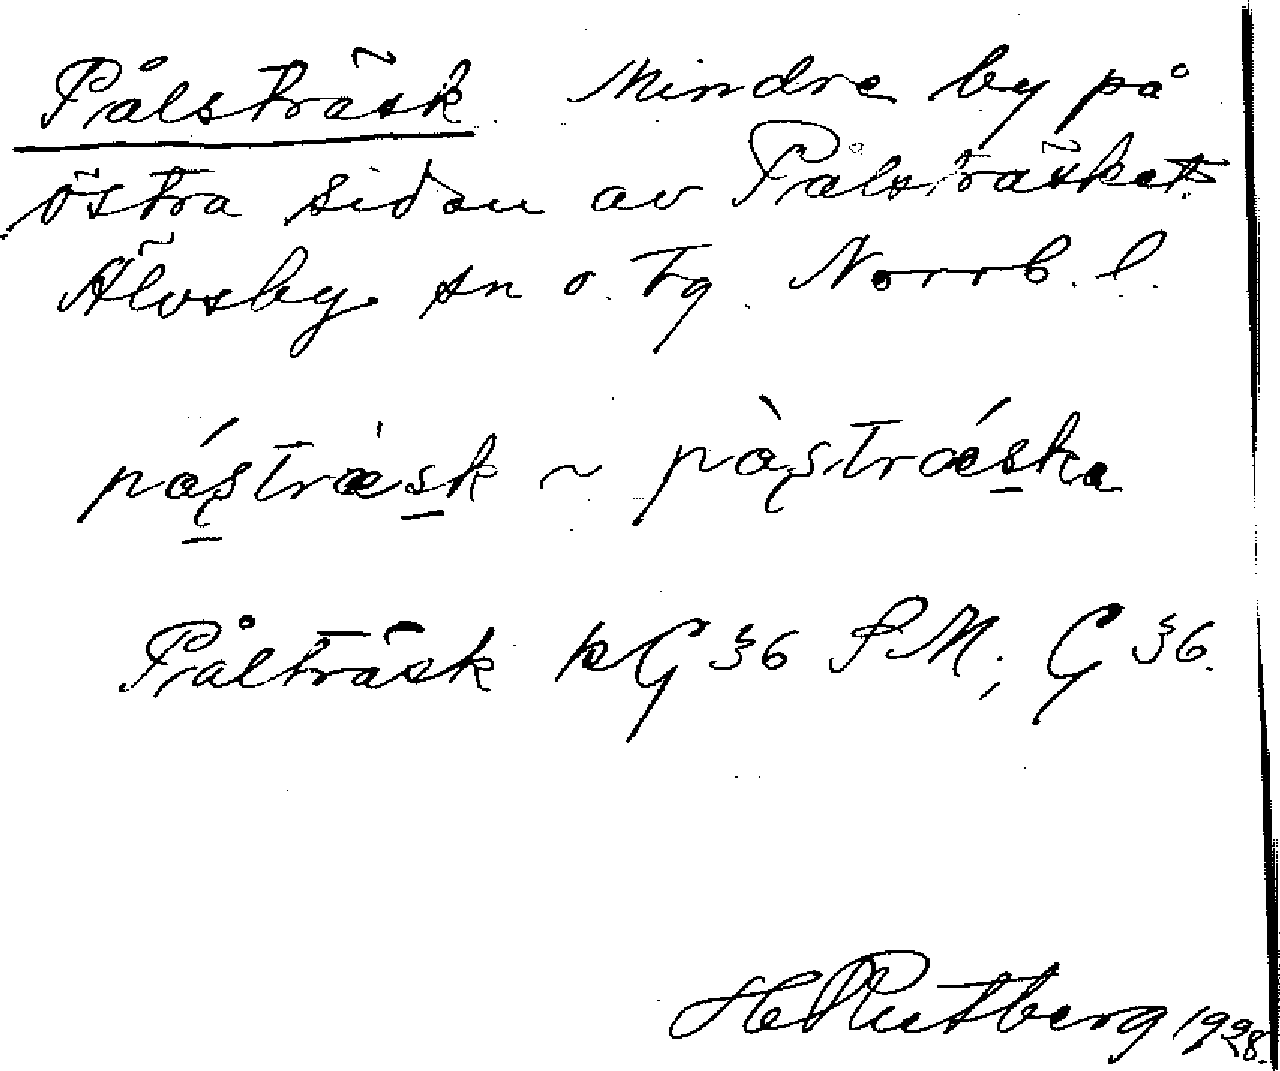 Pålsträsk Mindre by på
östra sidan av Pålsträsket
Älvsby sn o. tg. Norrb. l.
påstræsk ~ påstræska
Pålträsk kG §6 SM; G §6.
H Rutberg 1928.